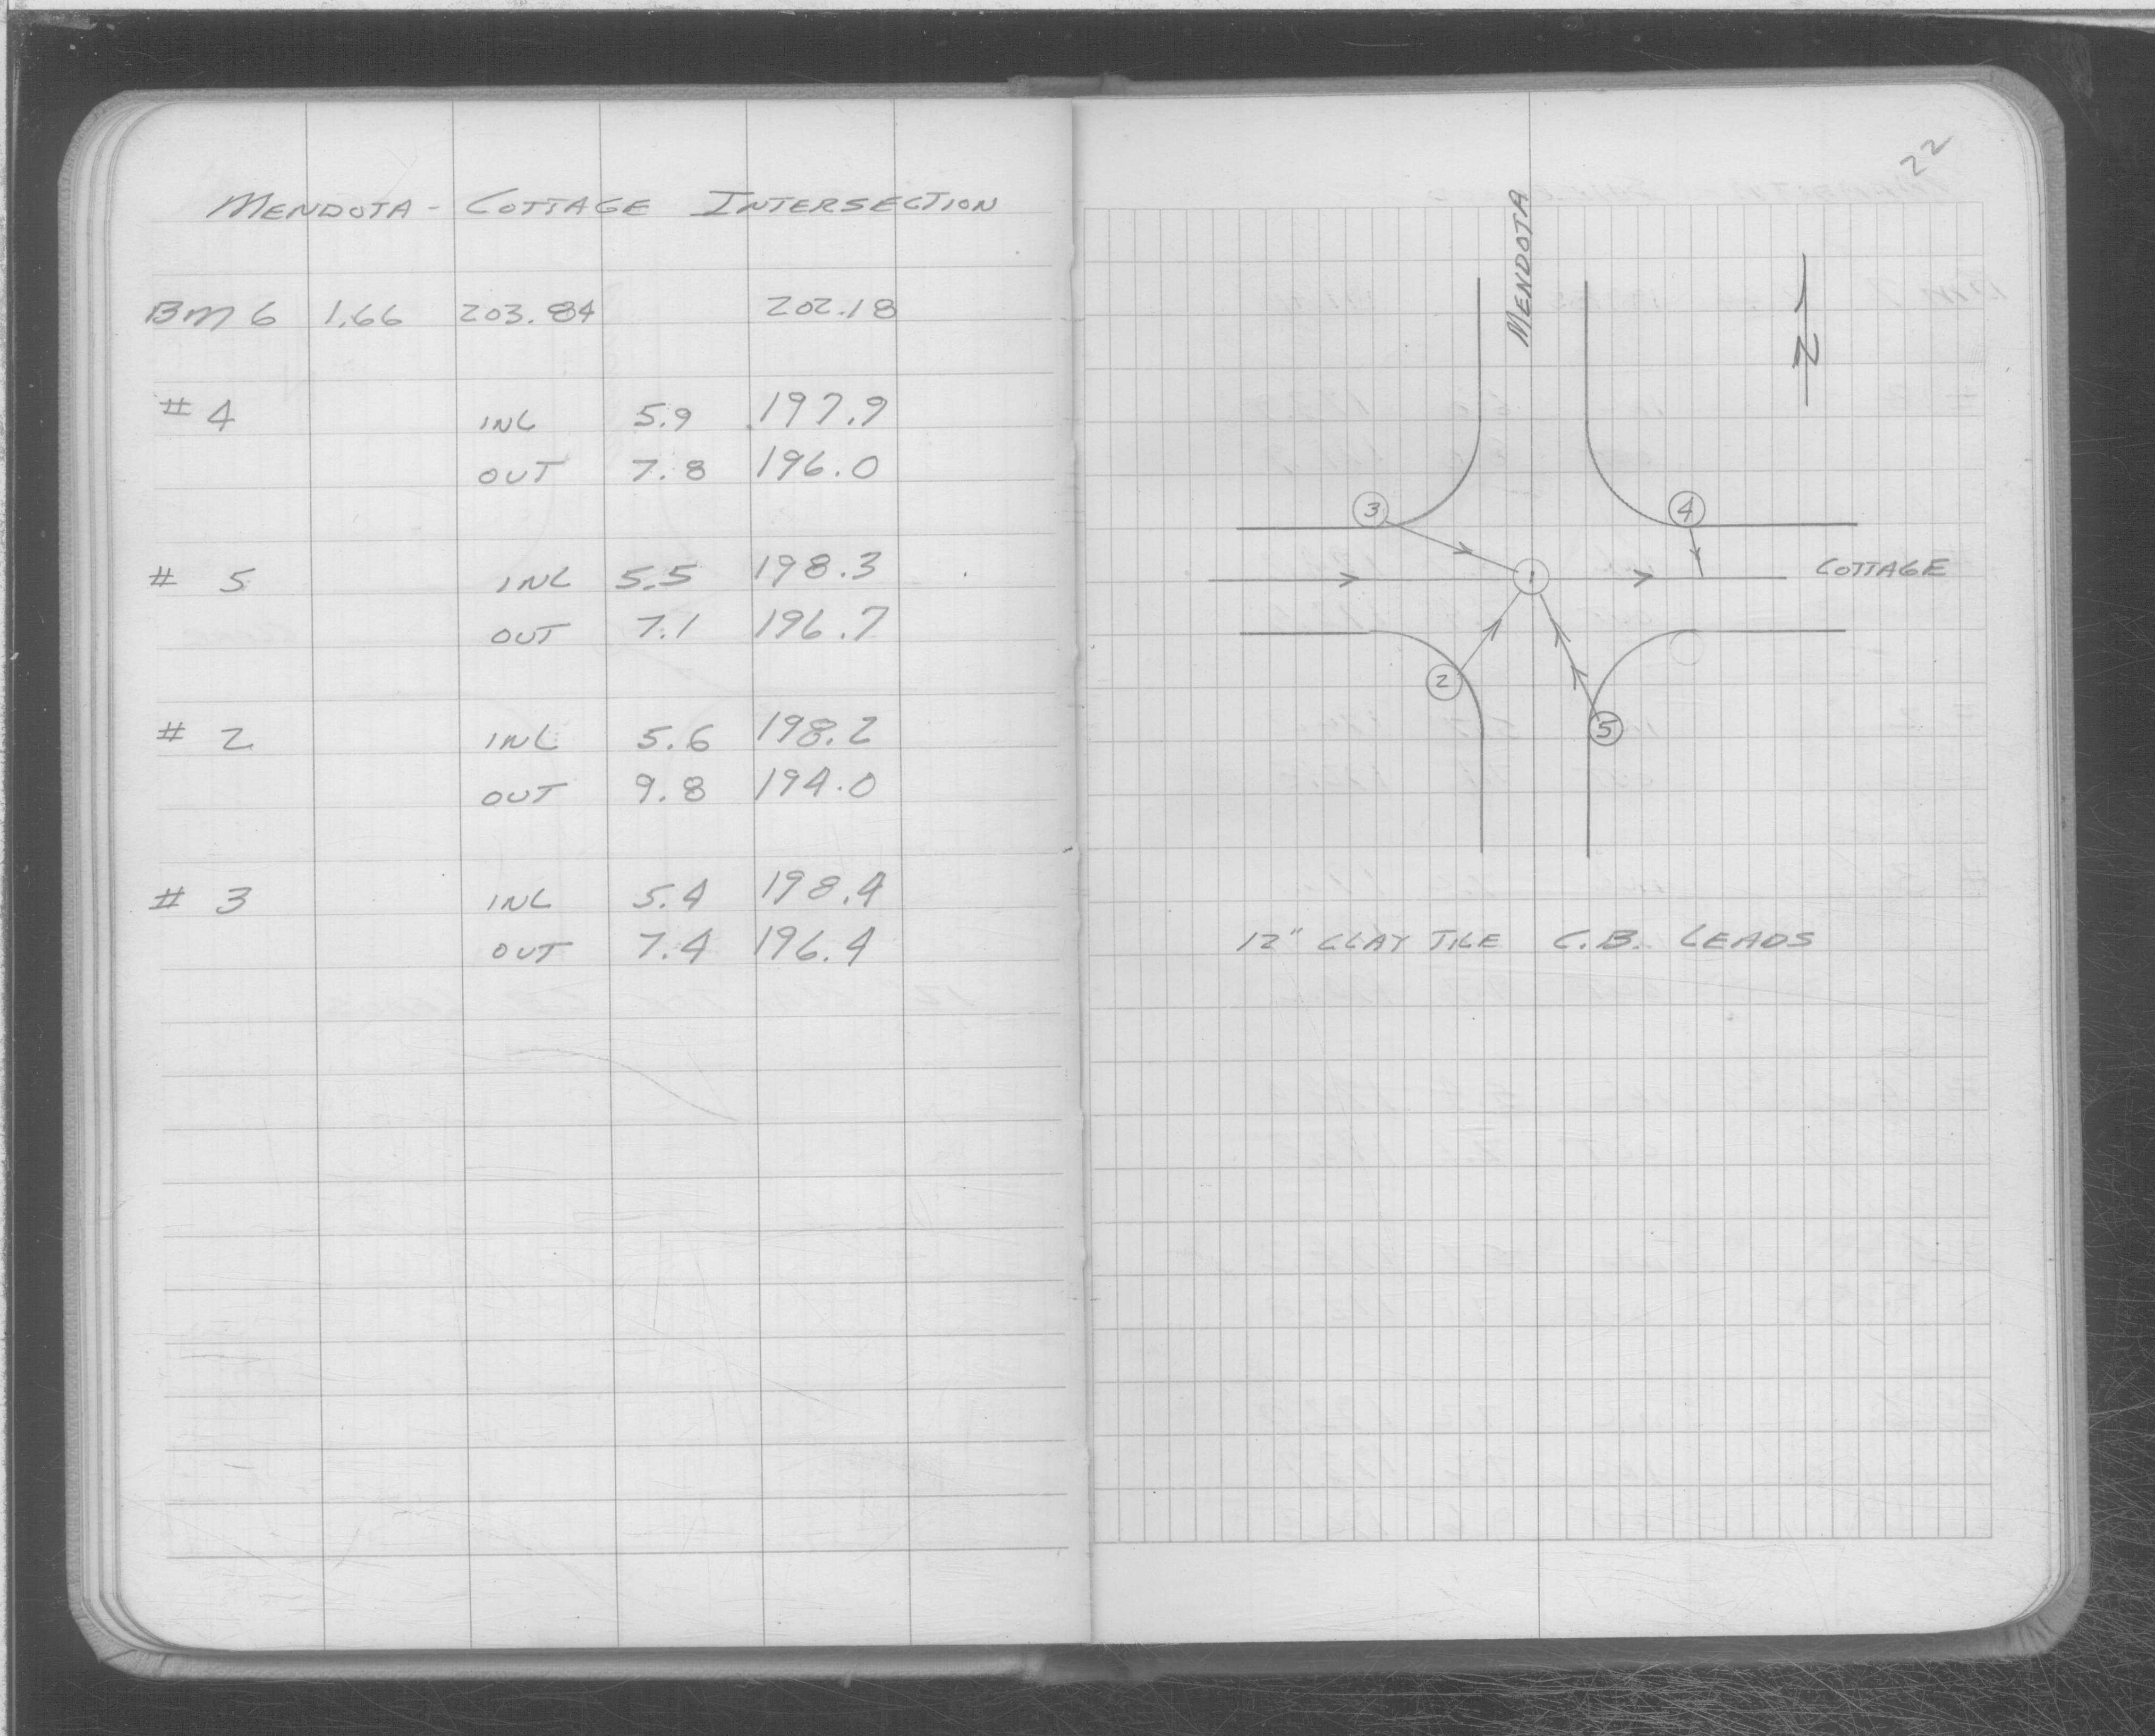 MENDOTA - COTTAGE INTERSECTION
BM 6 1.66 203.84 202.18
# 4 INL 5.9 197.9
OUT 7.8 196.0
# 5 INL 5.5 198.3
OUT 7.1 196.7
# 2 INL 5.6 198.2
OUT 9.8 194.0
# 3 INL 5.4 198.4
OUT 7.4 196.4
22
MENDOTA
N
3
4
1
COTTAGE
2
5
12" CLAY TILE C.B. LEADS